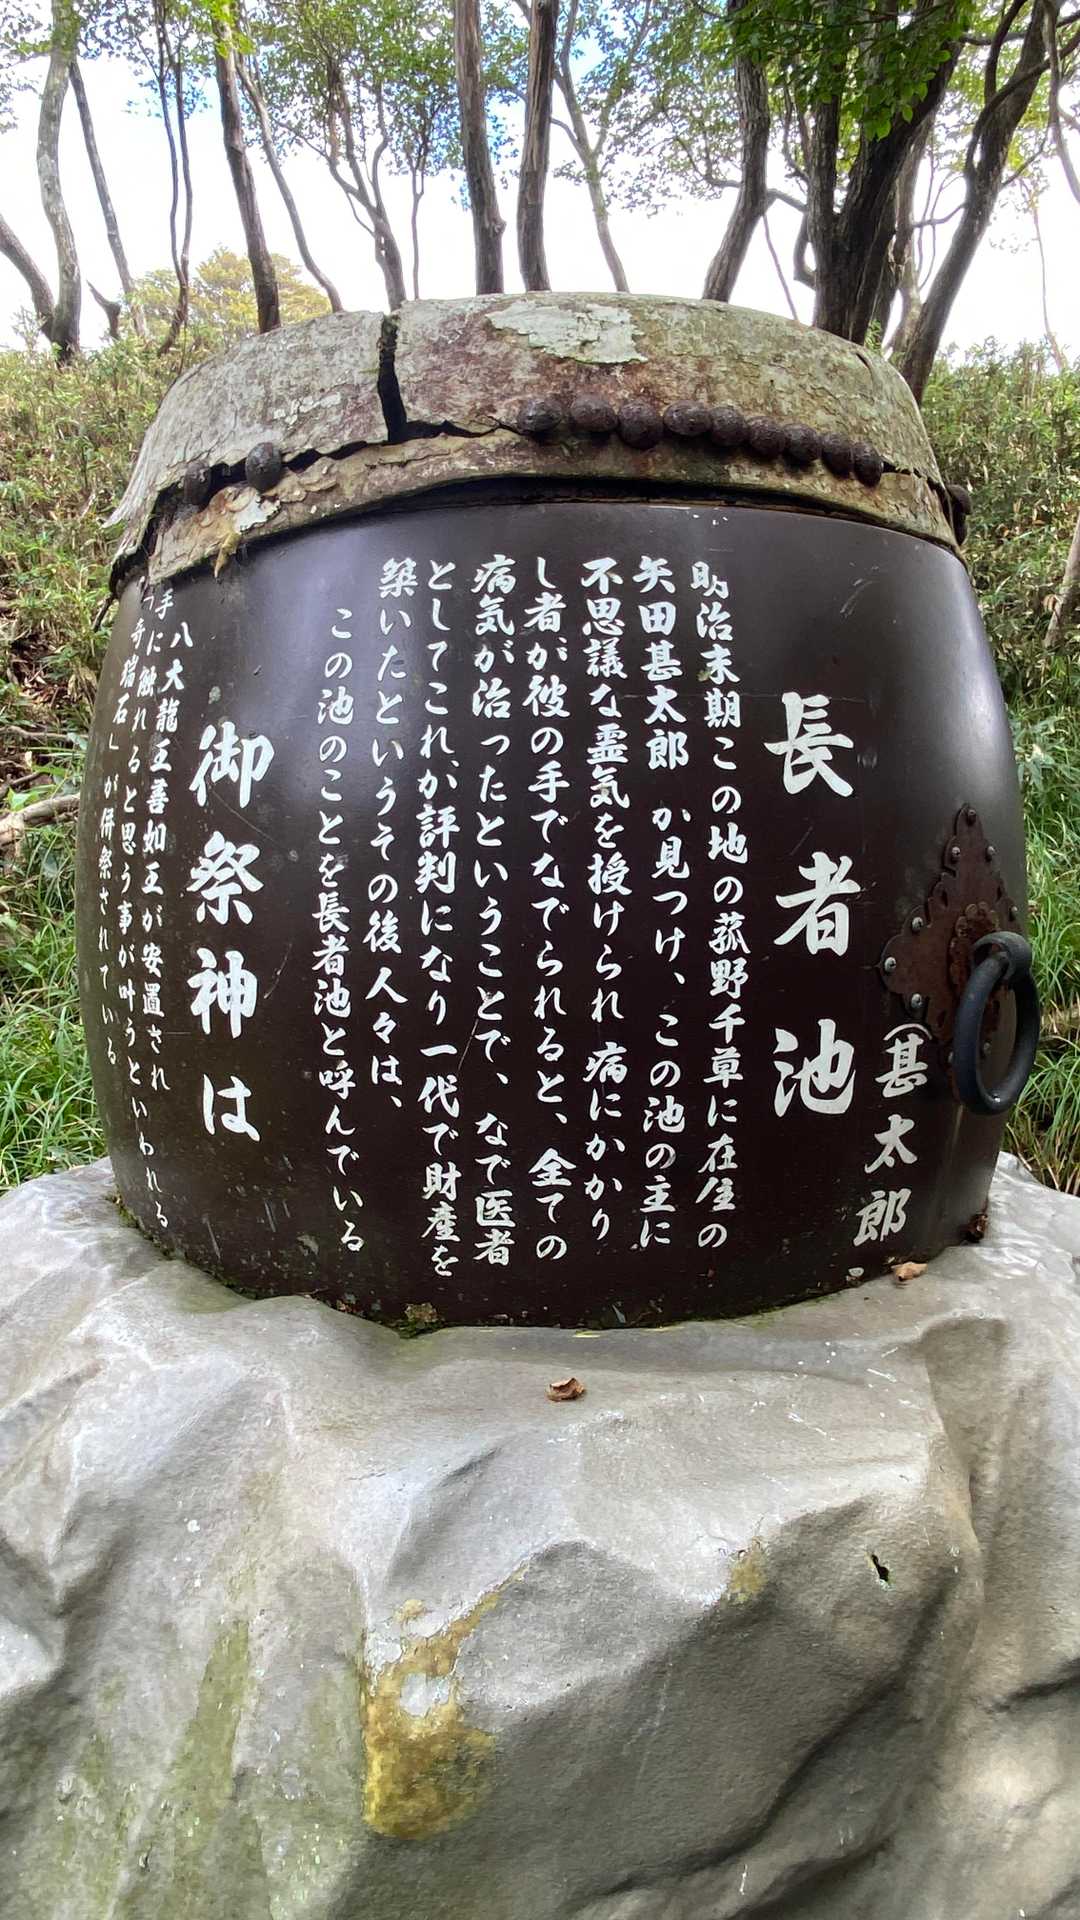 長者池
(甚太郎
明治末期この地の菰野千草に在住の
矢田甚太郎 が見つけ、この池の主に
不思議な霊気を授けられ 病にかかり
し者が彼の手でなでられると、全ての
病気が治ったということで、なで医者
としてこれが評判になり一代で財産を
築いたというその後人々は、
この池のことを長者池と呼んでいる
御祭神は
八大龍王善如王が安置され
手に触れると思う事が叶うといわれる
奇瑞石」が併祭されている